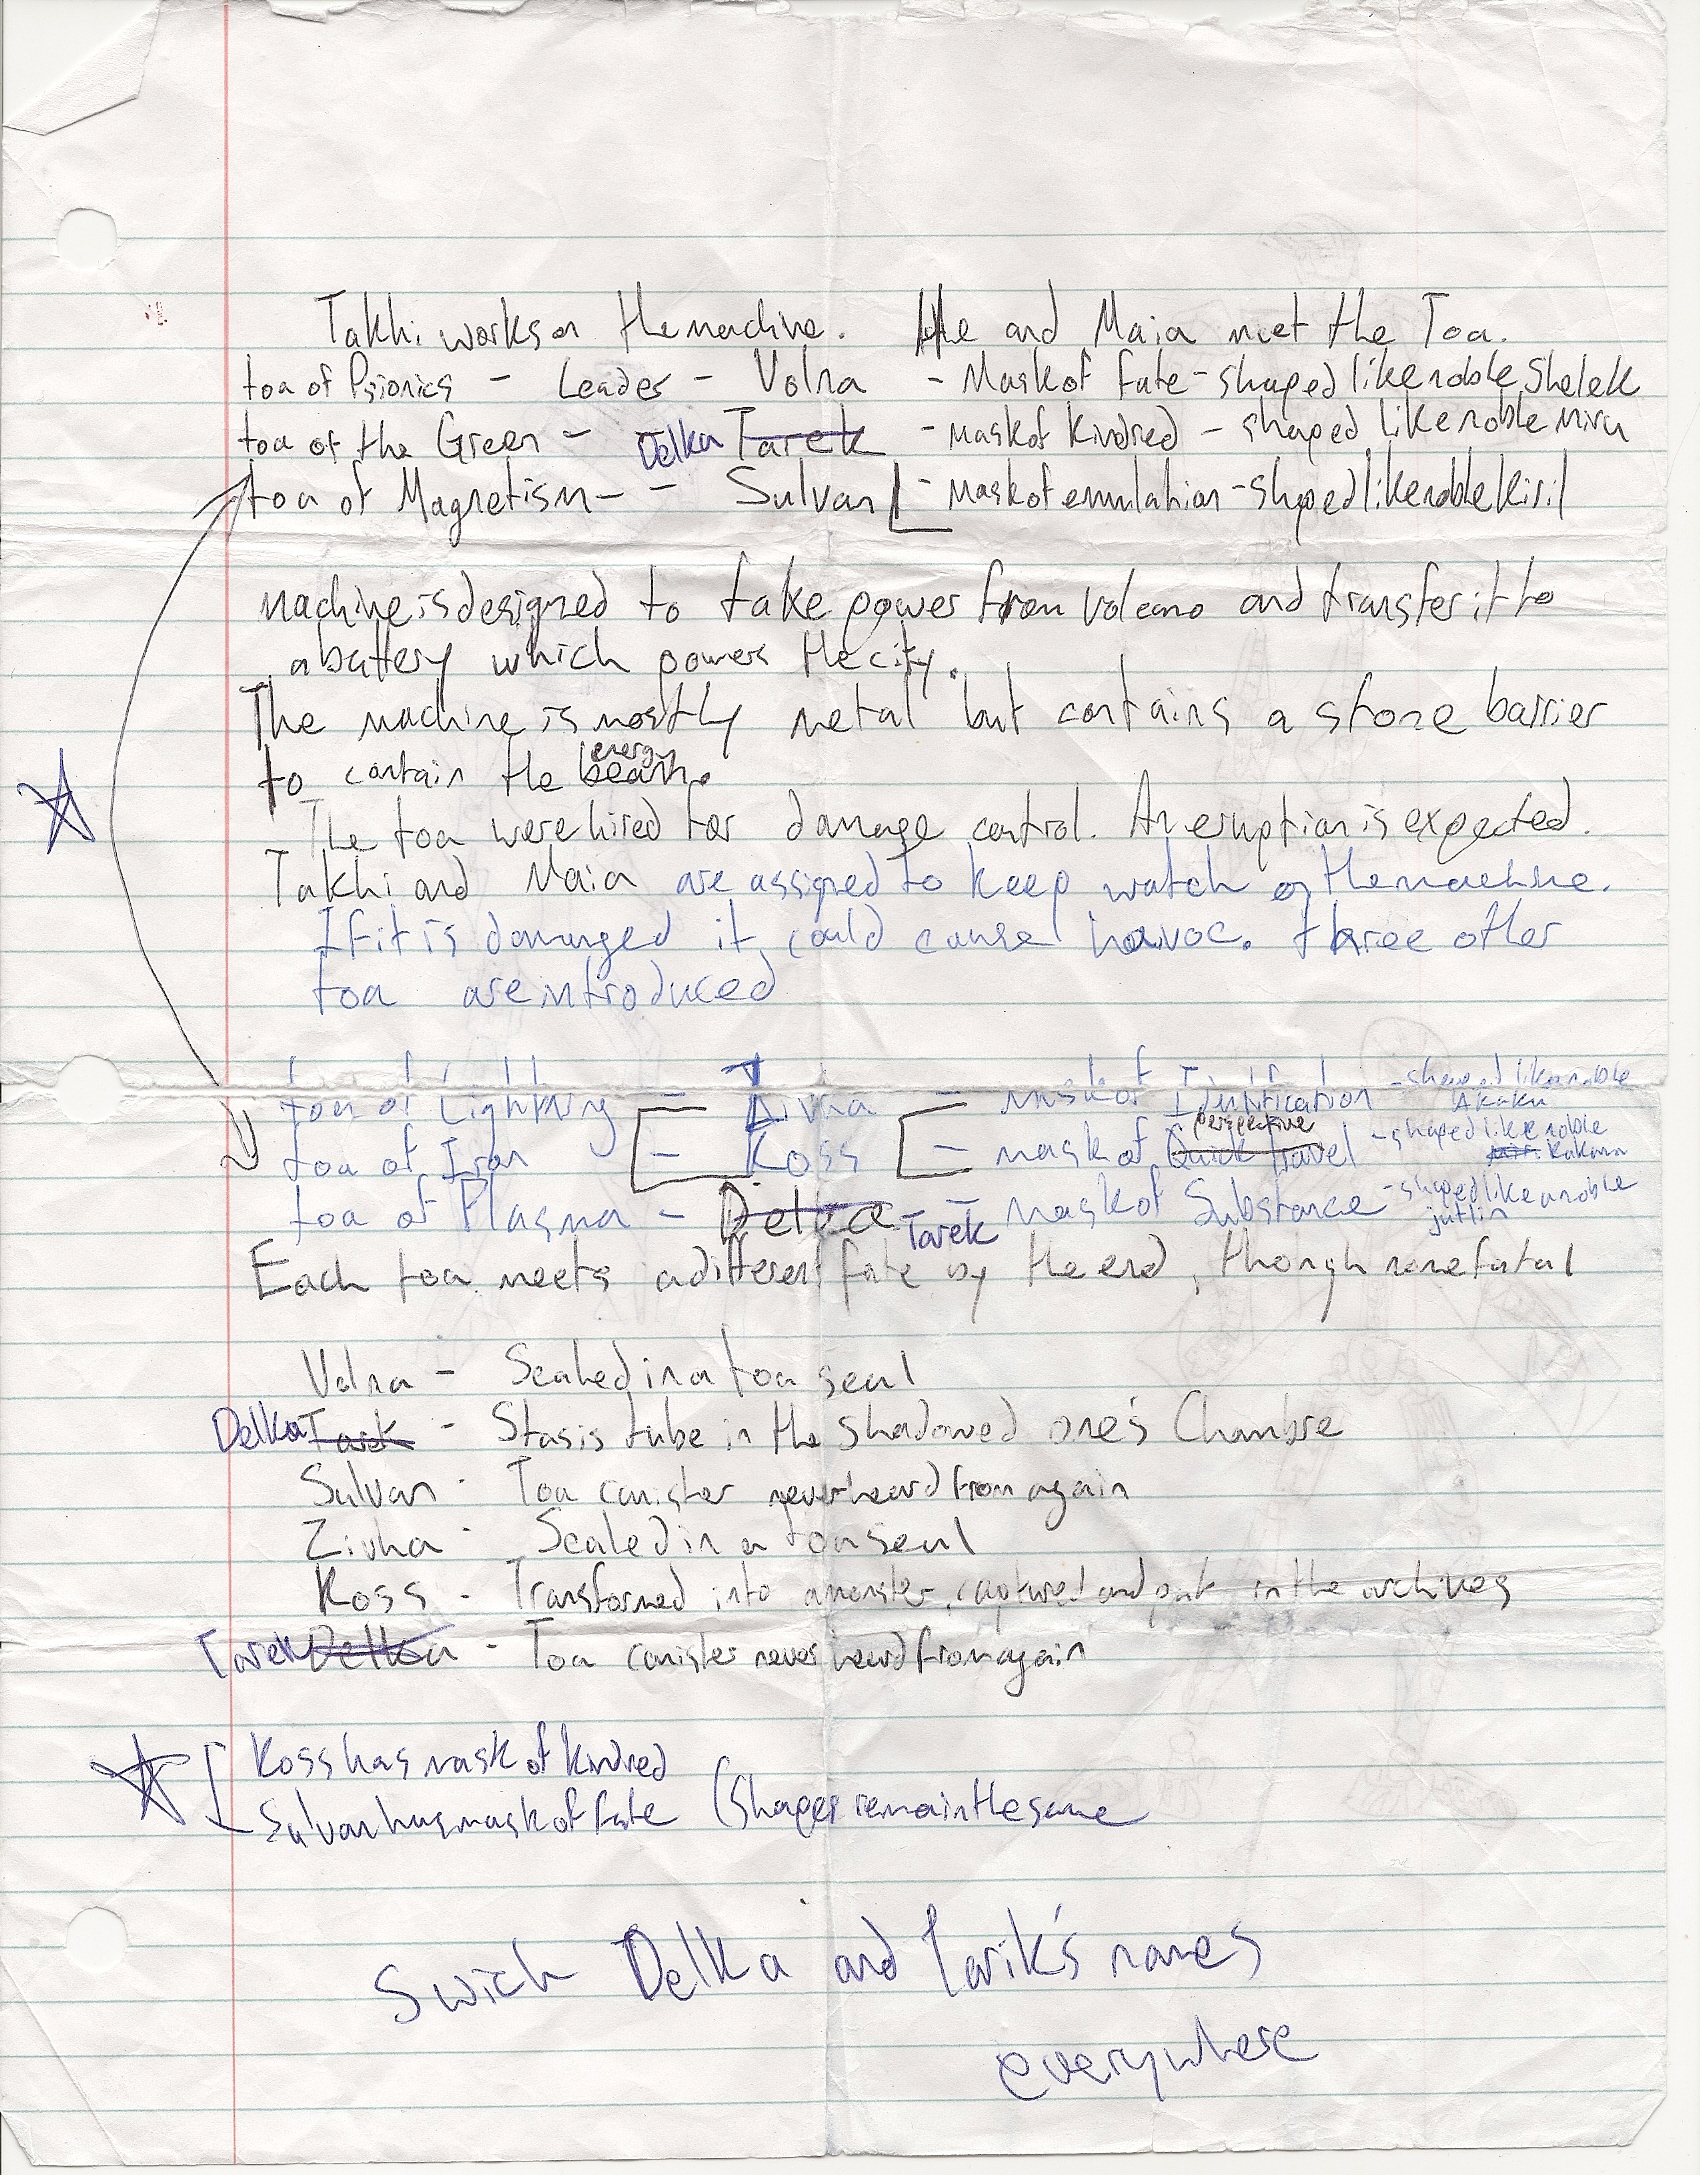 Takhi works on the machine. He and Maia meet the Toa.
toa of Psionics - Leader - Volna - Mask of fate - shaped like noble Shelek
toa of the Green - Delka Tarek - mask of kindred - shaped like noble miru
toa of Magnetism - - Sulvan - mask of emulation - shaped like noble kiril
machine is designed to take power from volcano and transfer it to
a battery which powers the city.
The machine is mostly metal but contains a stone barrier
energy
to contain the beam.
The toa were hired for damage control. An eruption is expected.
Takhi and Maia are assigned to keep watch of the machine.
If it is damaged it could cause havoc. three other
toa are introduced
toa of Lightning - Zivha - mask of Identification - shaped like noble Akaku
perspective
toa of Iron - Koss - mask of Quick travel - shaped like noble Kakama
toa of Plasma - Delka Tarek - mask of Substance - shaped like a noble jutlin
Each toa meets a different fate by the end, though none fatal
Volna - Sealed in a toa seal
Delka Tarek - Stasis tube in the shadowed one's Chambre
Sulvan - Toa canister never heard from again
Zivha - Sealed in a toa seal
Koss - Transformed into a monster, captured and put in the archives
Tarek Delka - Toa canister never heard from again
Koss has mask of kindred
Sulvan has mask of fate (Shapes remain the same
Swich Delka and Tarik's names
everywhere